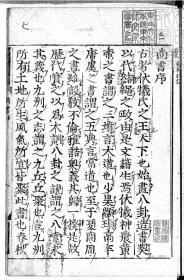 尚書序
古者伏犧氏之王天下也始畫八卦造書契
以代結繩之政由是文籍生焉伏犧神農黃
帝之書謂之三墳言大道也少昊顓頊高辛
唐虞之書謂之五典言常道也至于夏商周
之書雖設教不倫雅誥奧義其歸一揆是故
歷代寶之以為大訓八卦之說謂之八索求
其義也九州之志謂之九丘丘聚也言九州
所有土地所生風氣所宜皆聚此書也春秋